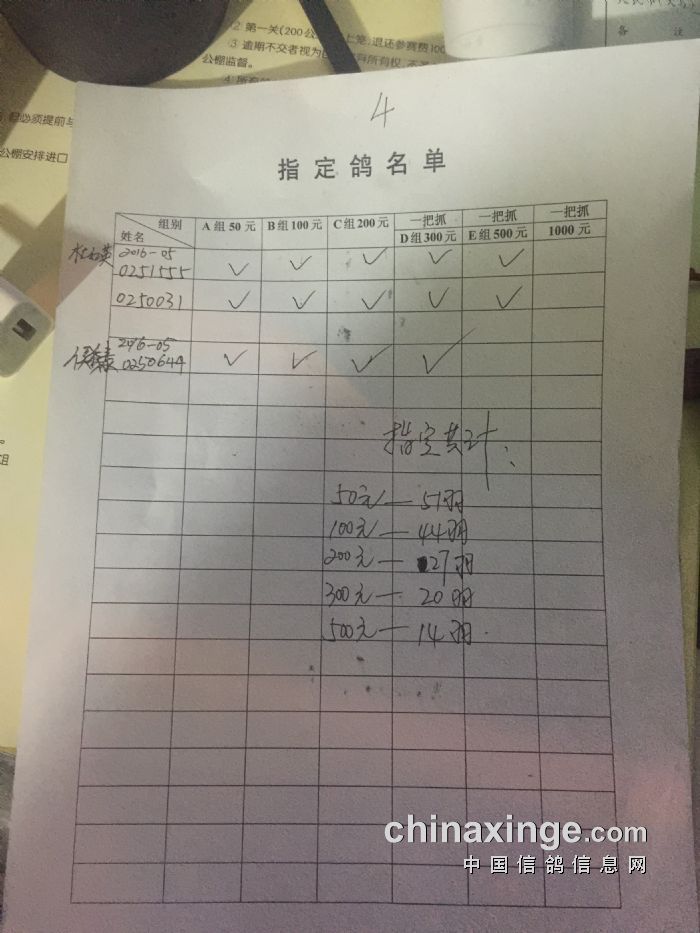 2 第一关(200公
上笼,退还参赛费100
③ 逾期不交者视为
所有权,
公棚监督。
备 注
必须提前与
公棚安排进口
组
4
指定鸽名单
组别 A组50元 B组100元 C组200元 一把抓 一把抓 一把抓
姓名 D组300元 E组500元 1000元
2016-05
0251555 ✓ ✓ ✓ ✓ ✓
0250031 ✓ ✓ ✓ ✓ ✓
2016-05
0250644 ✓ ✓ ✓ ✓
指定共计:
50元—51羽
100元—44羽
200元—27羽
300元—20羽
500元—14羽.
chinaxinge.com
中国信鸽信息网